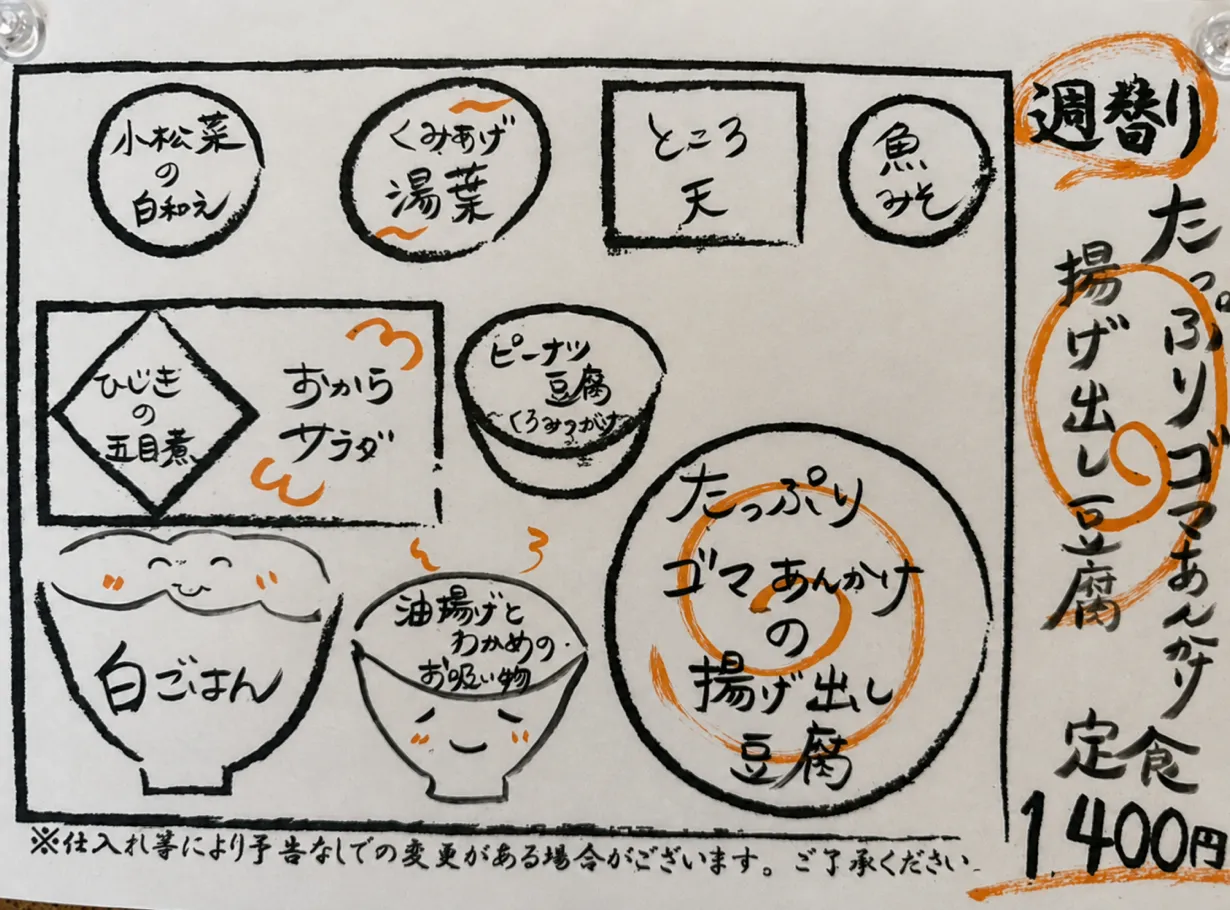 週替り
たっぷりゴマあんかけ
揚げ出し豆腐
定食
1400円
小松菜
の
白和え
くみあげ
湯葉
ところ
天
魚
みそ
ひじき
の
五目煮
おから
サラダ
ピーナツ
豆腐
くろみつがけ
たっぷり
ゴマあんかけ
の
揚げ出し
豆腐
白ごはん
油揚げと
わかめの
お吸い物
※仕入れ等により予告なしでの変更がある場合がございます。ご了承ください。